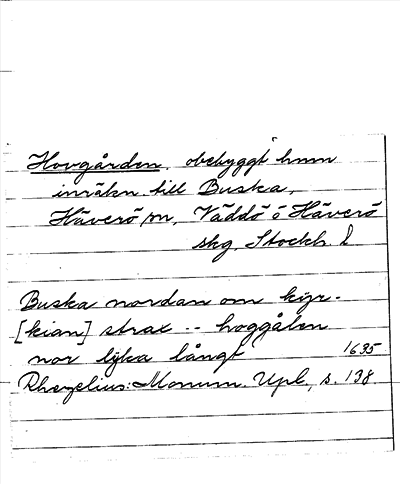 Hovgården, obebyggt hmn
inräkn. till Buska,
Häverö sn, Väddö o Häverö
skg, Stockh. l
Buska nordan om kijr-
[kian] strax .. hoggålen
nor lijka långt 1635
Rhezelius: Monum. Upl., s. 138.